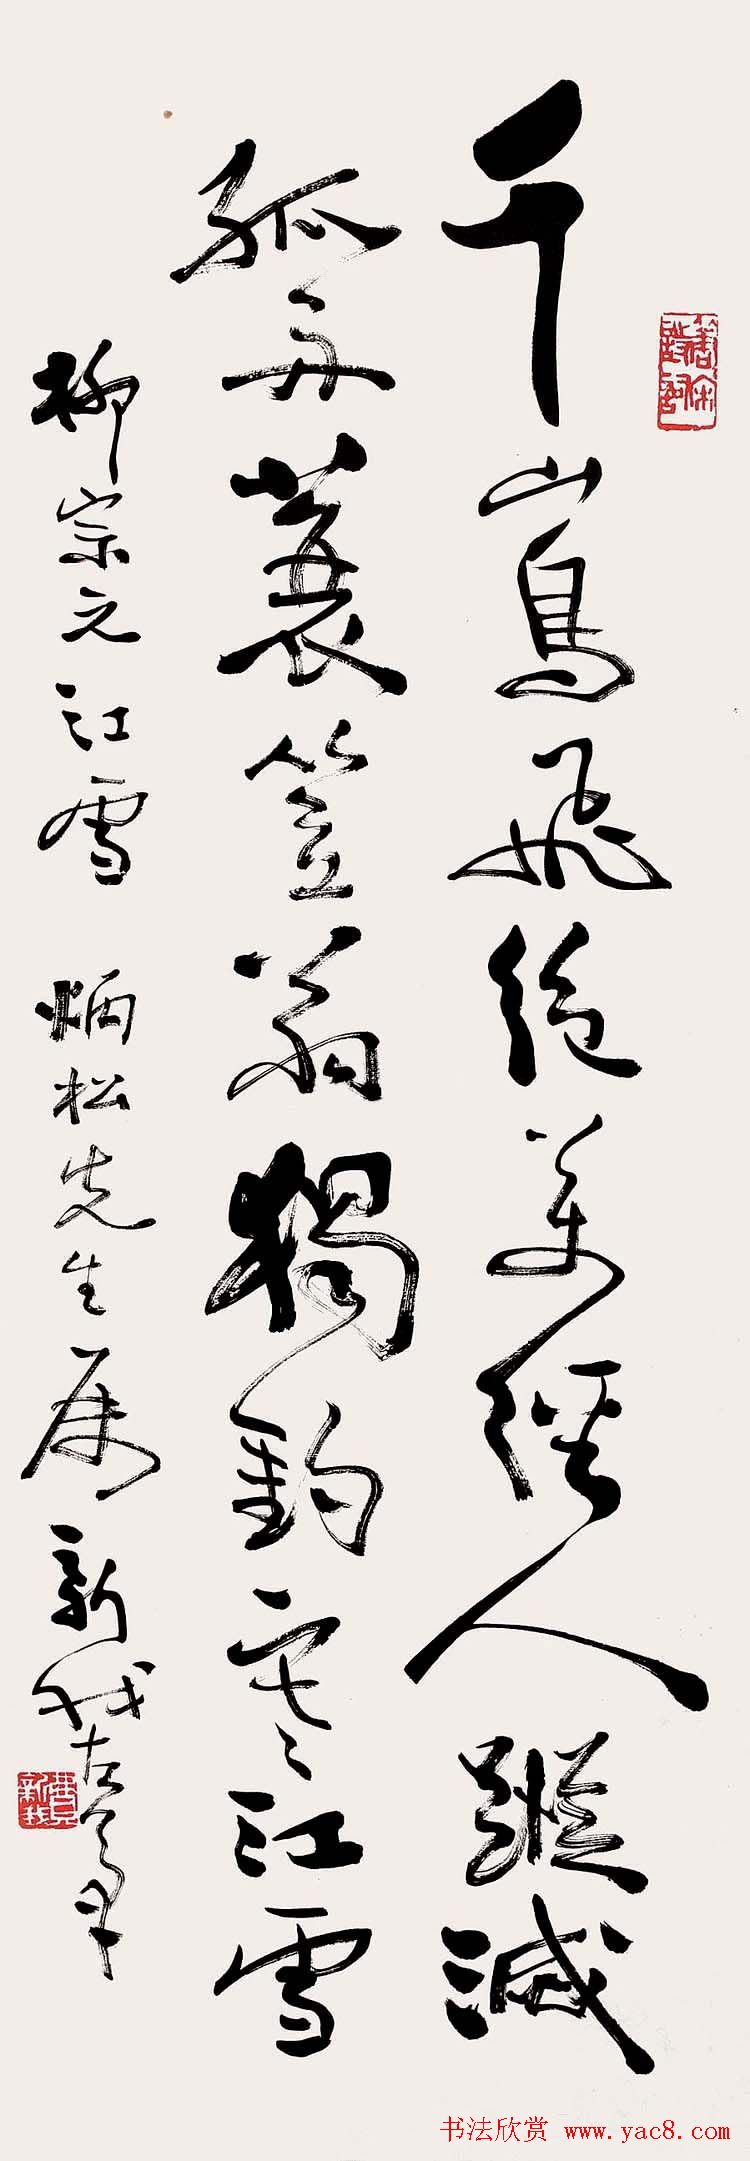 千山鳥飛絕萬徑人蹤滅
孤舟蓑笠翁獨釣寒江雪
柳宗元江雪 炳松先生属 新我左筆
书法欣赏 www.yac8.com